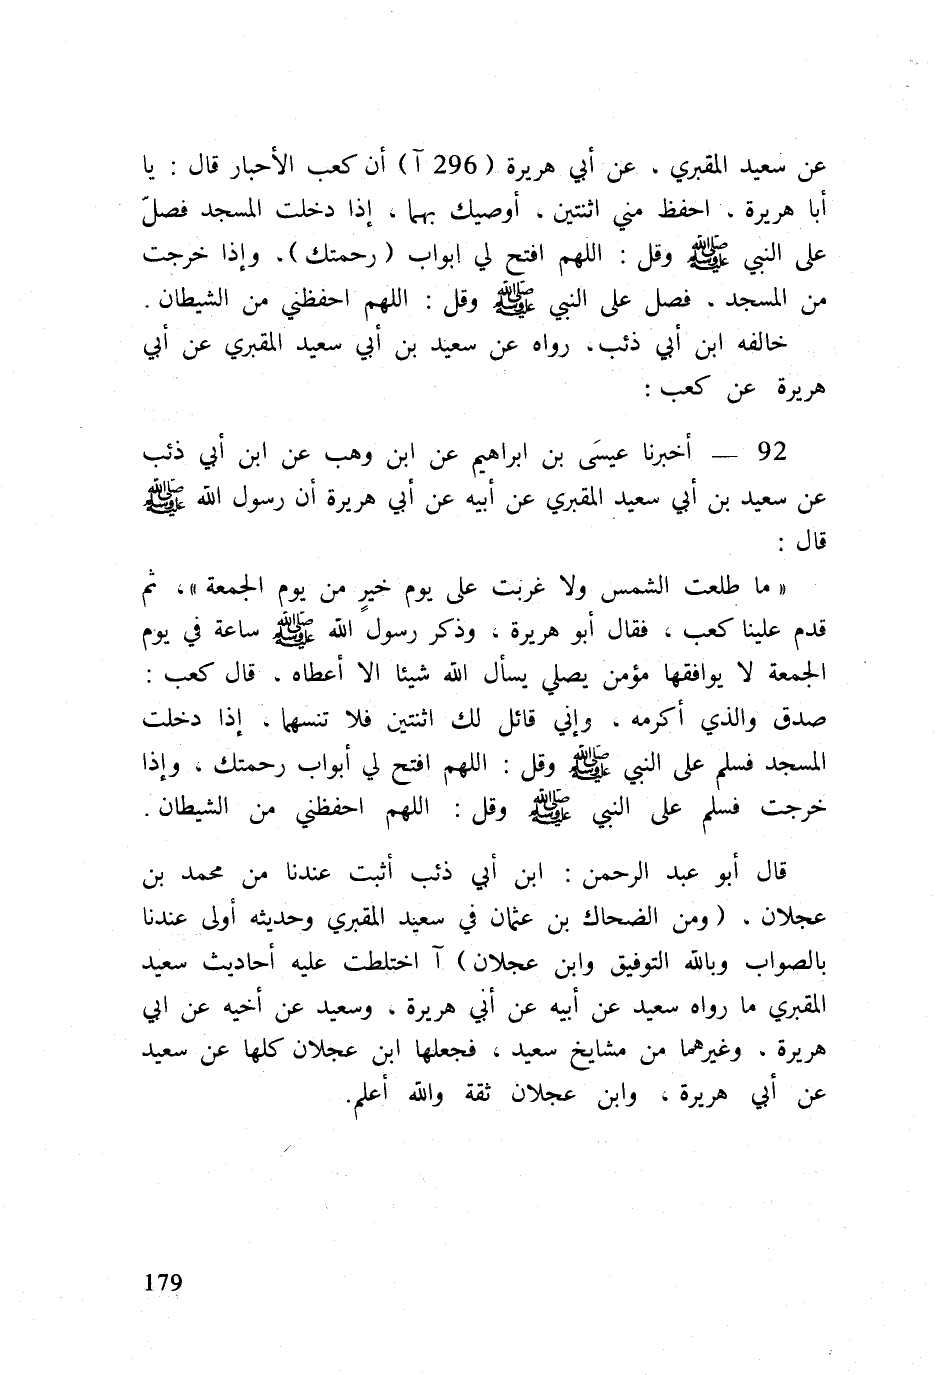 عن سعيد المقبري . عن أبي هريرة ( 296 آ ) أن كعب الأحبار قال : يا
أبا هريرة . احفظ مني اثنتين . أوصيك بهما ، إذا دخلت المسجد فصلّ
على النبي ﷺ وقل : اللهم افتح لي ابواب ( رحمتك ). وإذا خرجت
من المسجد . فصل على النبي ﷺ وقل : اللهم احفظني من الشيطان .
خالفه ابن أبي ذئب، رواه عن سعيد بن أبي سعيد المقبري عن أبي
هريرة عن كعب :
92 — أخبرنا عيسَى بن ابراهيم عن ابن وهب عن ابن أبي ذئب
عن سعيد بن أبي سعيد المقبري عن أبيه عن أبي هريرة أن رسول الله ﷺ
قال :
« ما طلعت الشمس ولا غربت على يوم خيرٍ من يوم الجمعة »، ثم
قدم علينا كعب ، فقال أبو هريرة ، وذكر رسول الله ﷺ ساعة في يوم
الجمعة لا يوافقها مؤمن يصلي يسأل الله شيئا الا أعطاه . قال كعب :
صدق والذي أكرمه . وإني قائل لك اثنتين فلا تنسها . إذا دخلت
المسجد فسلم على النبي ﷺ وقل : اللهم افتح لي أبواب رحمتك ، وإذا
خرجت فسلم على النبي ﷺ وقل : اللهم احفظني من الشيطان .
قال أبو عبد الرحمن : ابن أبي ذئب أثبت عندنا من محمد بن
عجلان . ( ومن الضحاك بن عثمان في سعيد المقبري وحديثه أولى عندنا
بالصواب وبالله التوفيق وابن عجلان ) آ اختلطت عليه أحاديث سعيد
المقبري ما رواه سعيد عن أبيه عن أبي هريرة ، وسعيد عن أخيه عن ابي
هريرة . وغيرهما من مشايخ سعيد ، فجعلها ابن عجلان كلها عن سعيد
عن أبي هريرة ، وابن عجلان ثقة والله أعلم.
179